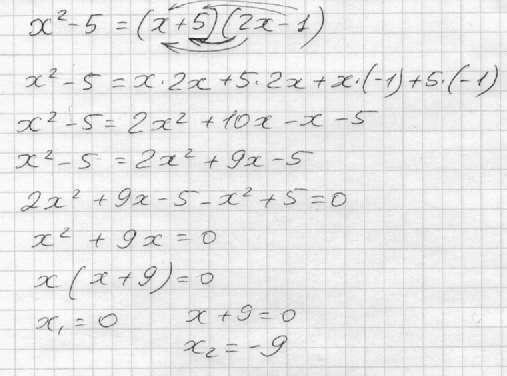 x² - 5 = (x + 5)(2x - 1)
x² - 5 = x · 2x + 5 · 2x + x · (-1) + 5 · (-1)
x² - 5 = 2x² + 10x - x - 5
x² - 5 = 2x² + 9x - 5
2x² + 9x - 5 - x² + 5 = 0
x² + 9x = 0
x(x + 9) = 0
x₁ = 0 x + 9 = 0
x₂ = -9